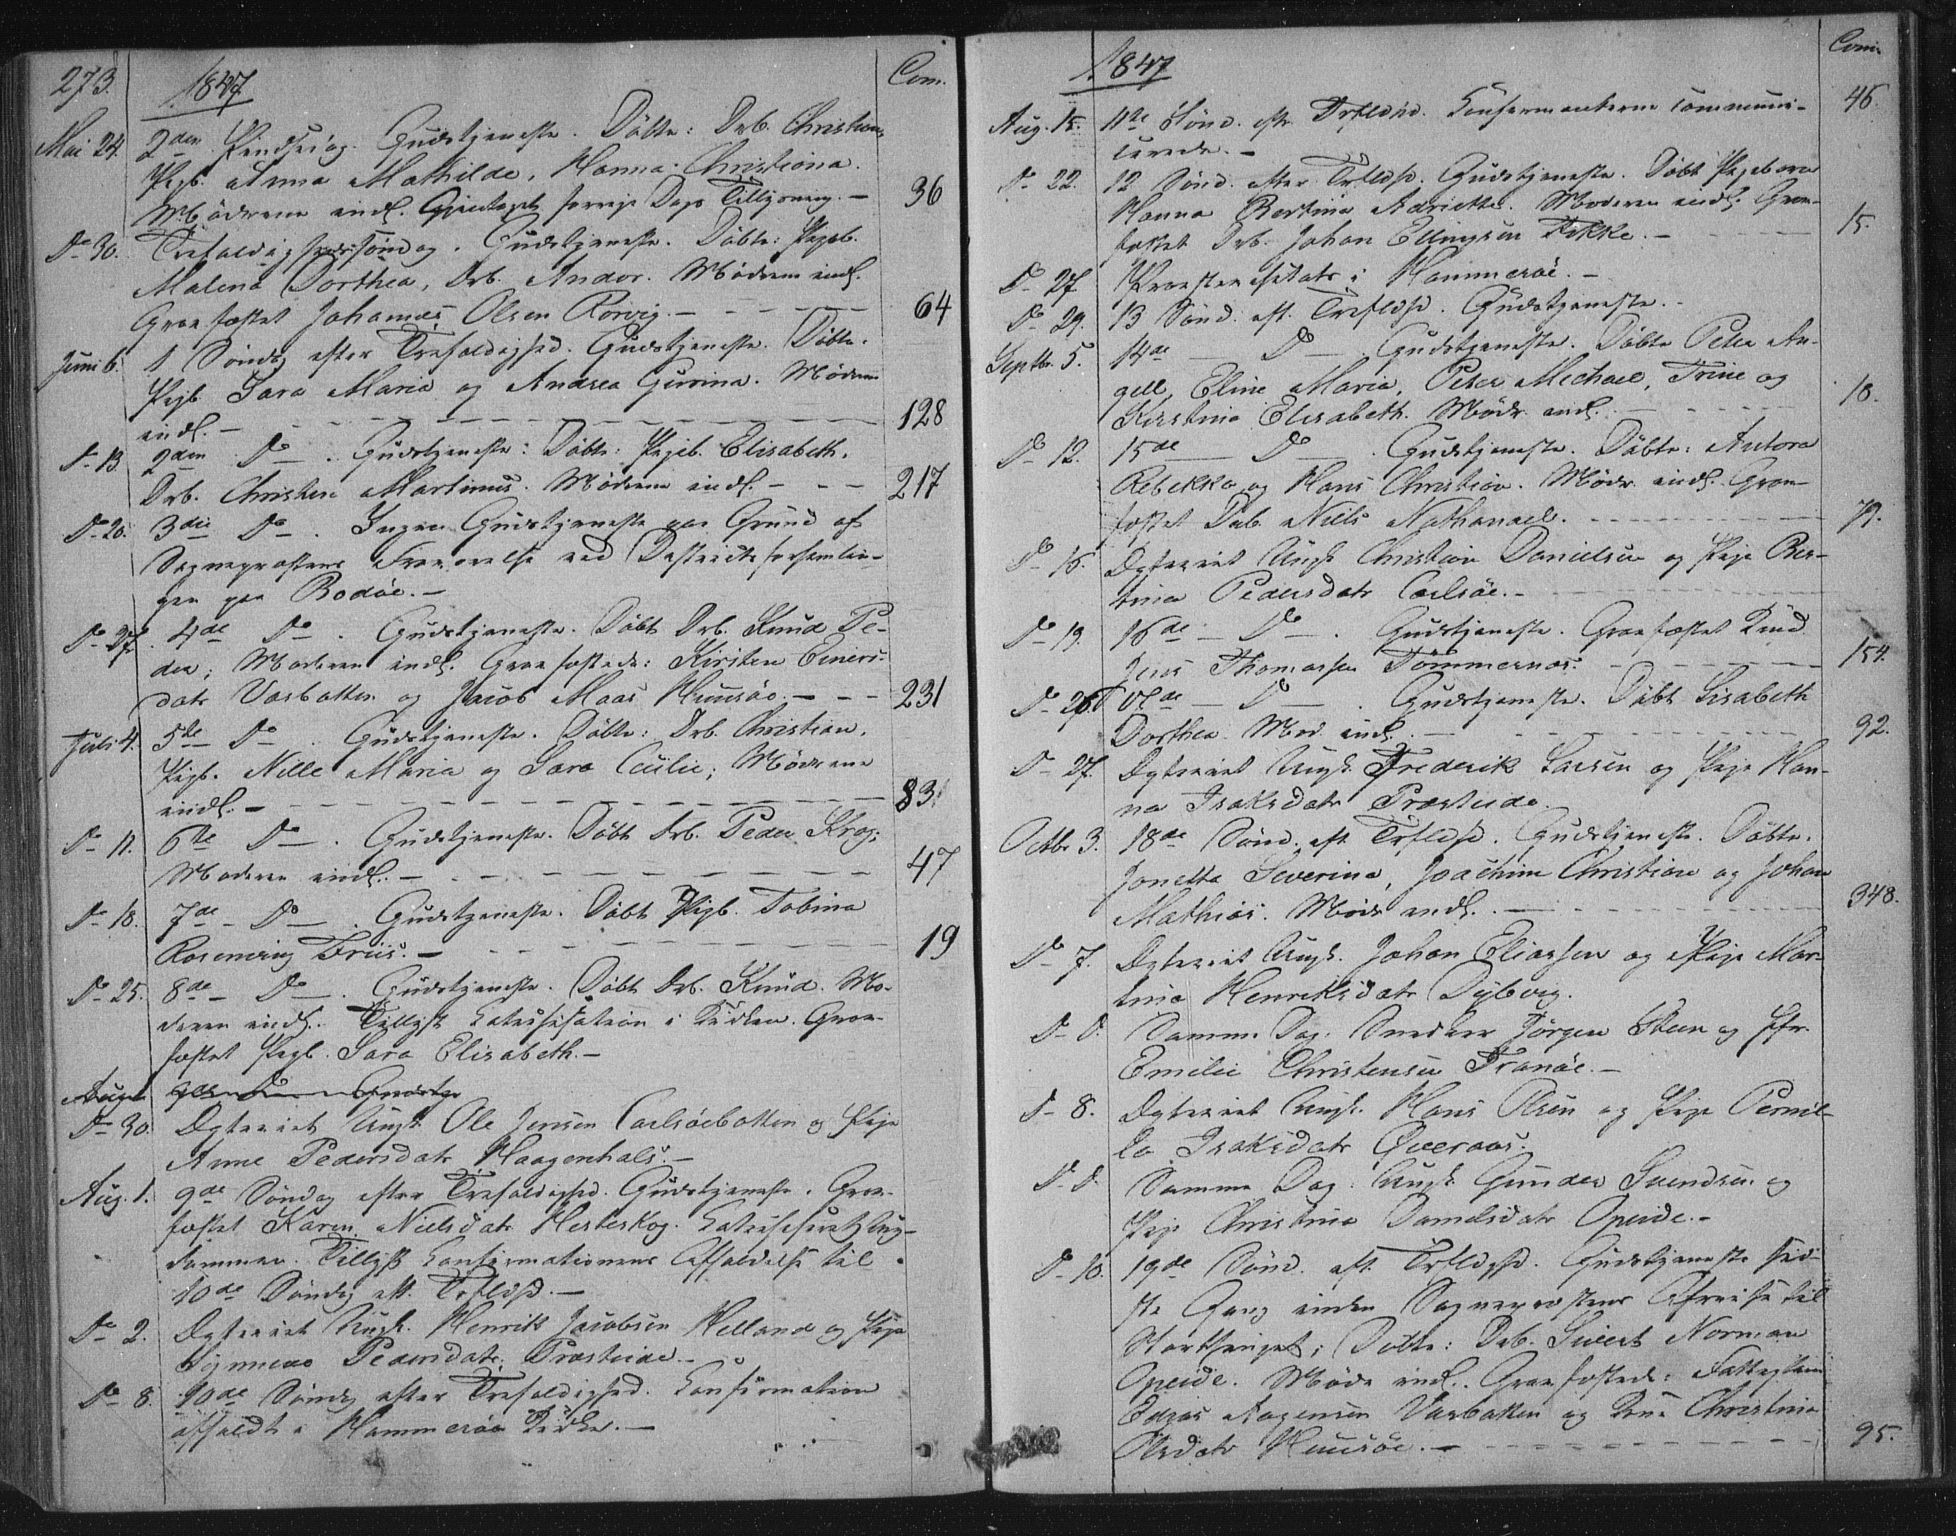 273.
1847
Com.
Mai 24. 2den Pindsedag. Gudstjeneste. Döbte: Drb. Christian,
Pigb. Anna Mathilde, Hanna Christiana.
Mödrene indl. Gjentaget forrige Dags Tillysning. — 36
Do 30. Trefoldigheds søndag. Gudstjeneste. Döbte: Pigeb.
Malena Dorthea, Drb. Andor. Mödrene indl.
Graefæstet Johannes Olsen Rörvig. — 64
Juni 6. 1 Söndag efter Trefoldighed. Gudstjeneste. Döbte.
Pigb. Sara Maria og Andrea Gurina. Mödrene
indl. — 128
Do 13. 2den Do . Gudstjeneste: Döbte: Pigeb. Elisabeth,
Drb. Christen Martinus. Mödrene indl. — 217
Do 20. 3die Do . Ingen Gudstjeneste paa Grund af
Sognepræstens Fraværelse ved Districtsforsamlin-
gen paa Bodöe. —
Do 27. 4de Do . Gudstjeneste. Döbt Drb. Knud Pe-
der; Moderen indl. Graefæstede: Kirsten Einers-
datr Varbotten og Jacob Maas Huusöe. — 231
Juli 4. 5te Do . Gudstjeneste. Döbte: Drb. Christian,
Pigb. Nille Maria og Sara Cecilie; Mödrene
indl. — 83.
Do 11. 6te Do . Gudstjeneste. Döbt Drb. Peder Krog;
Moderen indl. — 47
Do 18. 7de Do . Gudstjeneste. Döbt Pigb. Tobina
Rosenvinge Friis. — 19
Do 25. 8de Do . Gudstjeneste. Döbt Drb. Knud. Mo-
deren indl. Tillyst Catechisation i Kirken. Grae-
fæstet Pigb. Sara Elisabeth. —
Aug. 1 9de Do Gudstje
Do 30. Egteviet Ungk. Ole Jensen Carlsöebotten og Pige
Anne Pedersdatr Haagenhals. —
Aug. 1. 9de Söndag efter Trefoldighed. Gudstjeneste. Grae-
fæstet Karen Nielsdatr Hesteskog. Catechiseret Ung-
dommen. Tillyst Confirmationens Afholdelse til
10de Söndag eft. Trfldhd. —
Do 2. Egteviet Ungk. Henrik Jacobsen Helland og Pige
Pedersdatr Præsteide. —
Do 8. 10de Söndag efter Trefoldighed. Confirmation
afholdt i Hammeröe Kirke. —
1847
Com.
Aug. 15. 11te Sönd. eft. Trfldhd. Confirmanterne communi-
cerede. — 46.
Do 22. 12 Sönd. efter Trfldhd. Gudstjeneste. Döbt Pigebarn
Hanna Bertina Adriette. Moderen indl. Grae-
fæstet Drb. Johan Ellingsen Fikke. — 15.
Do 27. Provstevisitats i Hammeröe. —
Do 29. 13 Sönd. eft. Trefldhd. Gudstjeneste. —
Septbr. 5. 14de — Do — Gudstjeneste. Döbte Peter An-
gell, Eline Maria, Peter Michael, Trine og
Kirstina Elisabeth. Mödr. indl. — 18.
Do 12. 15de — Do — . Gudstjeneste. Döbte: Antora
Rebekka og Hans Christian. Mödr. indl. Grae-
fæstet Drb. Niels Nathanael. — 79.
Do 16. Egteviet Ungk. Christian Danielsen og Pige Ber-
tina Pedersdatr Carlsöe. —
Do 19. 16de — Do — . Gudstjeneste. Graefæstet Kind
Jens Thomassen Tömmernæs. — 154.
Do 26. 17de — Do — . Gudstjeneste. Döbt Lisabeth
Dorthea. Mod. indl. — 92.
Do 27. Egteviet Ungk. Frederik Larsen og Pige Han-
na Isaksdatr Præsteide.
Octbr. 3. 18de Sönd. eft. Trfldhd. Gudstjeneste. Döbte.
Janetta Severina, Joachim Christian og Johan
Mathias. Mödr. indl. — 348.
Do 7. Egteviet Ungk. Johan Eliassen og Pige Mar-
tina Henriksdatr Dybvig.
Do Do. Samme Dag. Snedker Jörgen Steen og Jfr.
Emilie Christensen Tranöe. —
Do 8. Egteviet Ungk. Hans Olsen og Pige Pernil-
la Isaksdatr Qveraas.
Do Do. Samme Dag. Ungk. Gunder Svendsen og
Pige Christina Danielsdatr Opeide. —
Do 10. 19de Sönd. eft. Trfldhd. Gudstjeneste sid-
ste Gang inden Sognepræstens Afreise til
Storthinget; Döbte: Drb. Sivert Norman
Opeide. Möde indl. Graefæstede: Fattiglem
Edeas Aagensen Varbotten og Kone Christina
Olsdatr Huusöe. — 95.